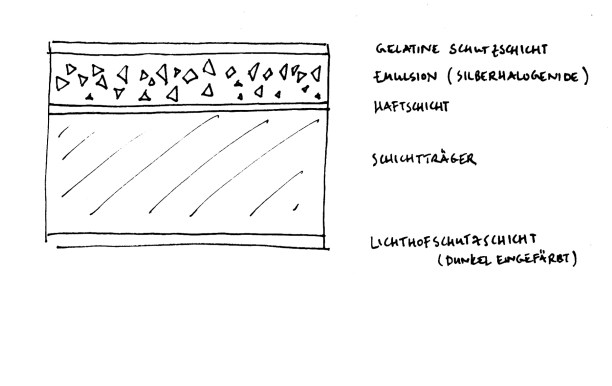 GELATINE SCHUTZSCHICHT
EMULSION (SILBERHALOGENIDE)
HAFTSCHICHT
SCHICHTTRÄGER
LICHTHOFSCHUTZSCHICHT
(DUNKEL EINGEFÄRBT)